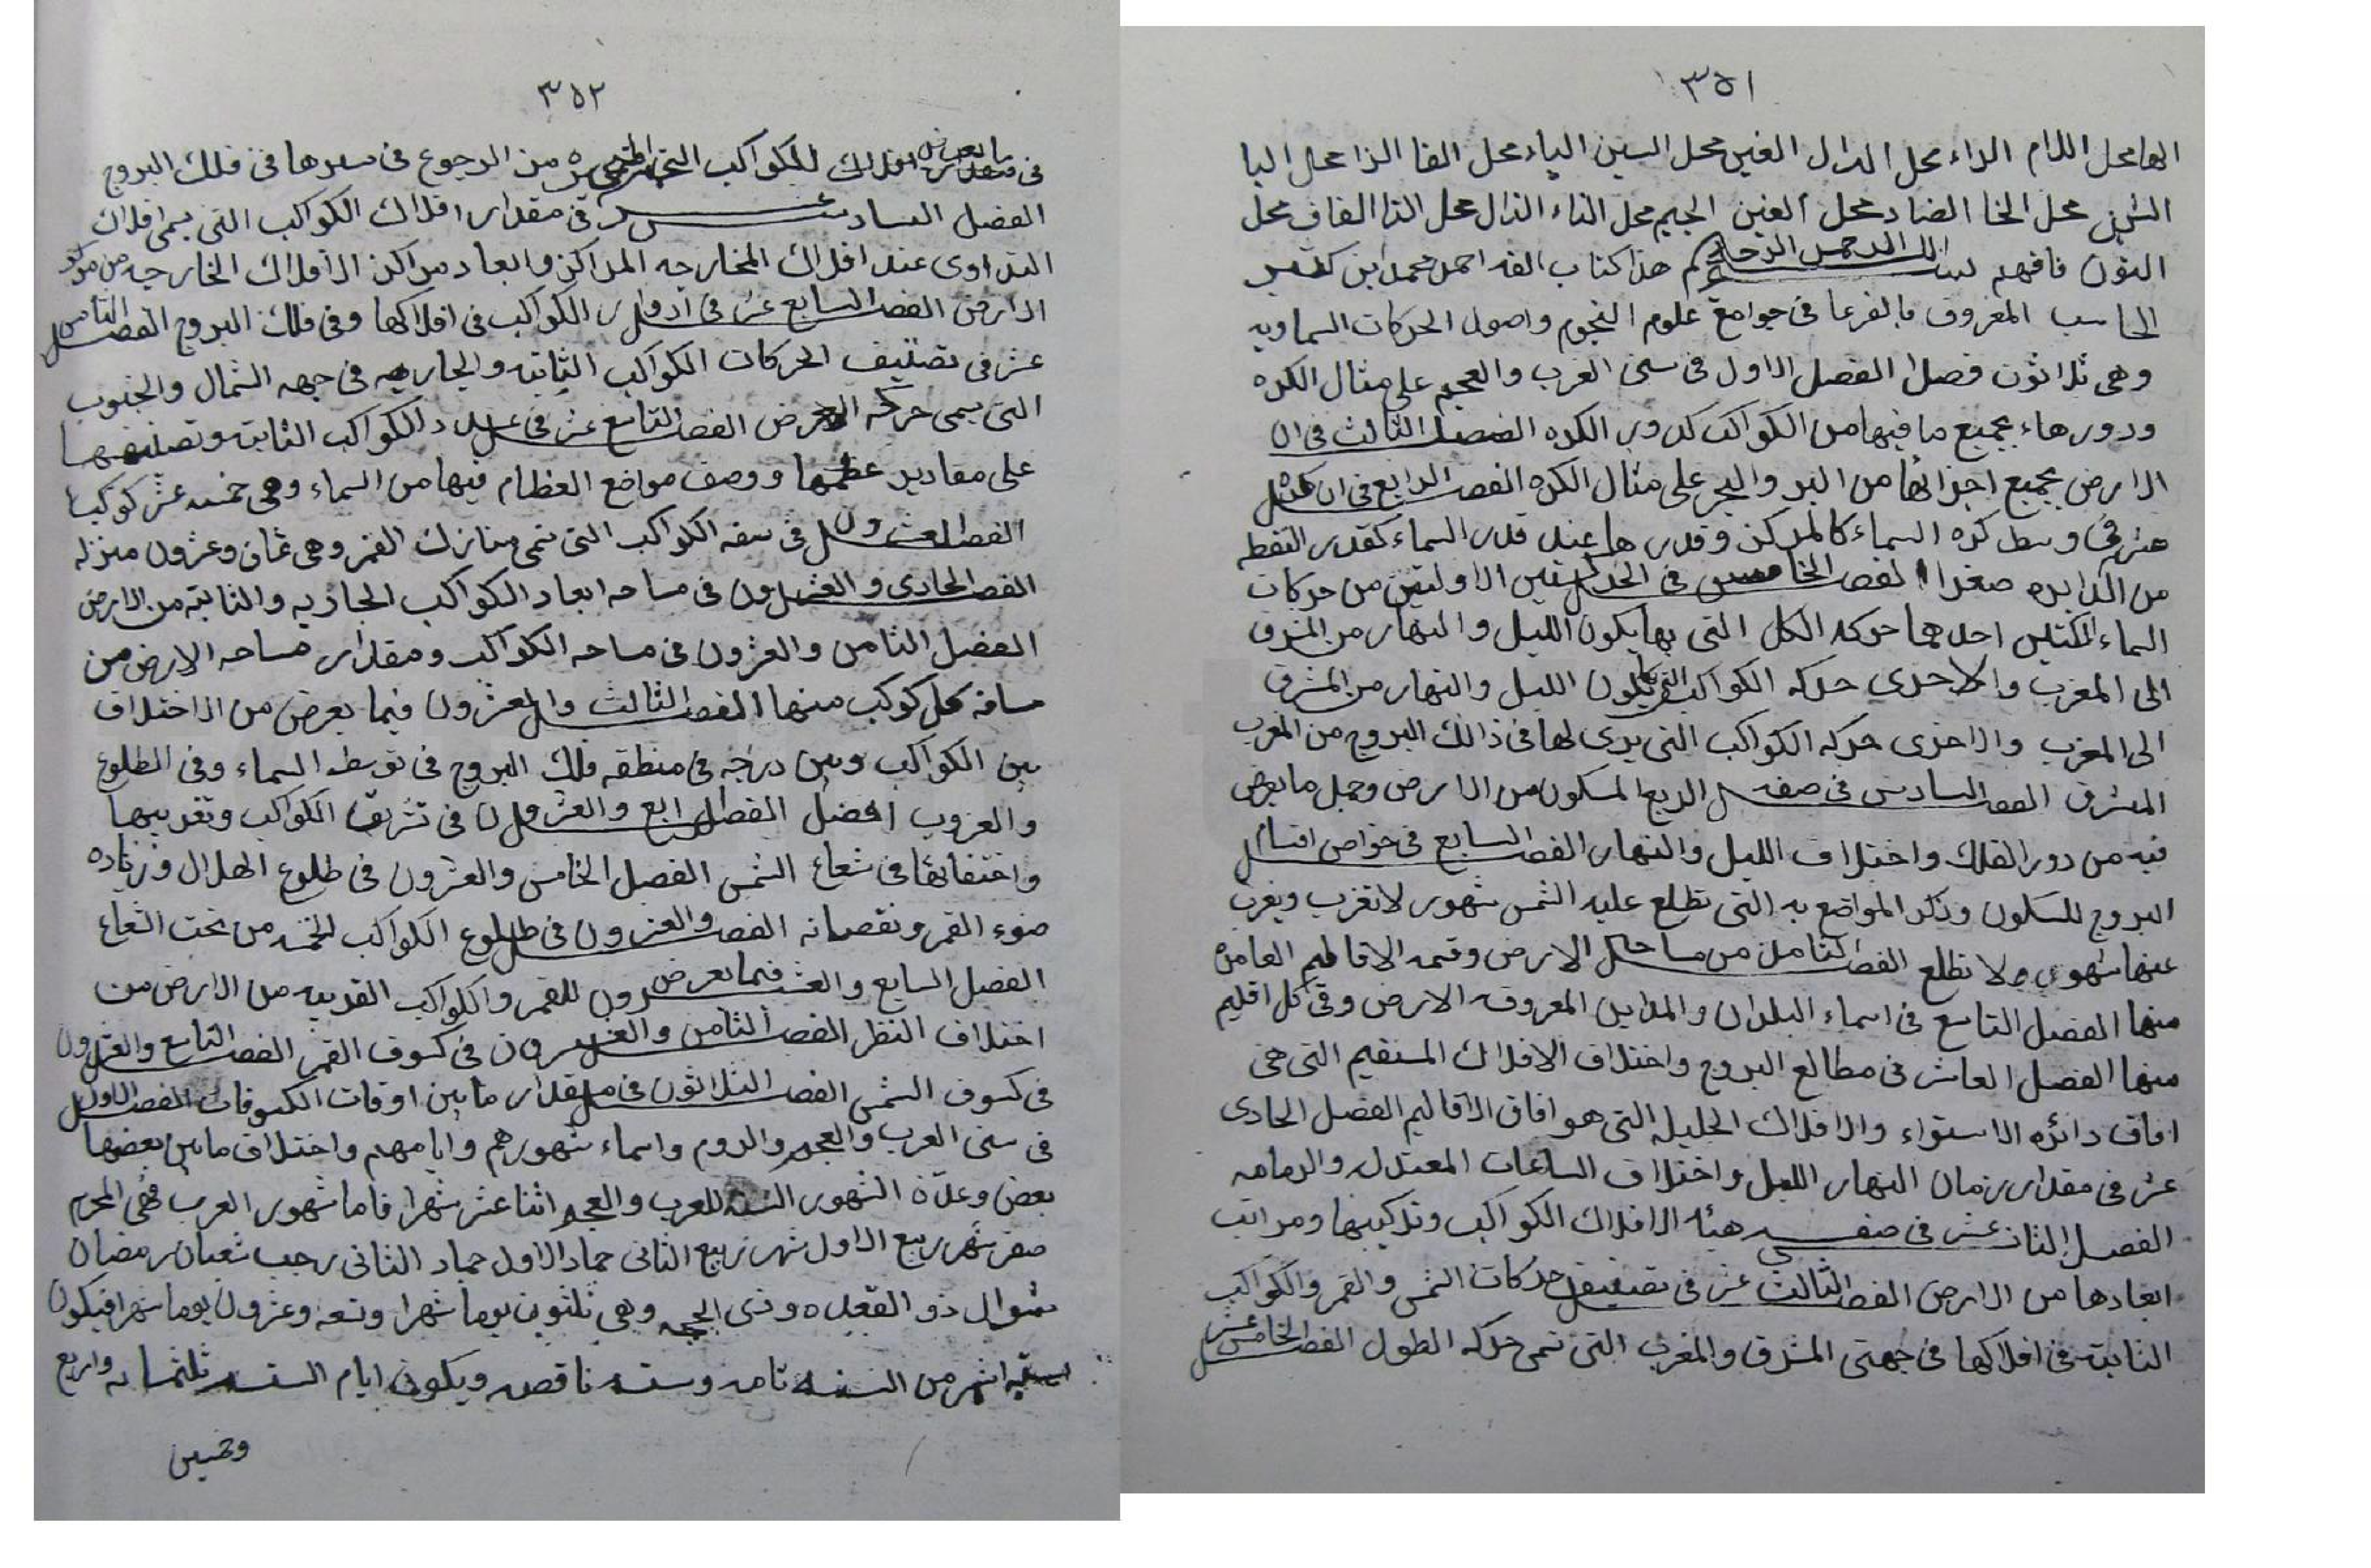 ٣٥١
الها محل اللام الراء محل الدال الغين محل السين الياء محل الفا الزا محل البا
الشين محل الخا الضاد محل العين الجيم محل الثاء الذال محل الثا القاف محل
النون فافهم بسم الله الرحمن الرحيم هذا كتاب الفه احمد محمد ابن كثير
الحاسب المعروف بالفرعا فى جوامع علوم النجوم واصول الحركات السماويه
وهى ثلاثون فصلا الفصل الاول فى سنى العرب والعجم على مثال الكره
ودورها بجميع ما فيها من الكواكب كدور الكره الفصل الثالث فى ان
الارض بجميع اجزائها من البر والبحر على مثال الكره الفصل الرابع فى ان كره
فى وسط كره السماء كالمركز وقدرها عند قدر السماء كقدر النقط
من الدايره صغرا الفصل الخامس فى الحركتين الاولتين من حركات
السماء احدهما حركه الكل التى بها يكون الليل والنهار من المشرق
الى المغرب والاخرى حركه الكواكب التى بها يكون الليل والنهار من المشرق
الى المغرب والاخرى حركه الكواكب التى يرى لها فى ذالك البروج من المغرب
المشرق الفصل السادس فى صفه الربع المسكون من الارض وجمل ما يعرض
فيه من دور الفلك واختلاف الليل والنهار الفصل السابع فى خواص اقسام
البروج للسكون وذكر المواضع به التى تطلع عليه الشمس شهور لا تغرب ويغرب
عنها شهور ولا تطلع الفصل الثامن من مساحه الارض وقسمه الاقاليم العامره
منها الفصل التاسع فى اسماء البلدان والمداين المعروفه الارض وفى كل اقليم
منها الفصل العاشر فى مطالع البروج واختلاف الافلاك المستقيم التى هى
افاق دائره الاستواء والافلاك الجليله التى هو افاق الاقاليم الفصل الحادى
عشر فى مقدار زمان النهار الليل واختلاف الساعات المعتدل والزمانيه
الفصل الثانى عشر فى صفه هيئه الافلاك الكواكب وتركيبها ومراتب
ابعادها من الارض الفصل الثالث عشر فى تصنيف حركات الشمس والقمر والكواكب
الثابته فى افلاكها فى جهتى المشرق والمغرب التى تسمى حركه الطول الفصل الخامس عشر
٣٥٢
فى ما يعرض للكواكب المتحيره من الرجوع فى سيرها فى فلك البروج
الفصل السادس عشر فى مقدار افلاك الكواكب التى يسمى افلاك
التداوى عند افلاك الخارجه المراكز وابعاد مراكز الافلاك الخارجه من مركز
الارض الفصل السابع عشر فى ادوار الكواكب فى افلاكها وفى فلك البروج الفصل الثامن
عشر فى تصنيف الحركات الكواكب الثابته والجاريه فى جهه الشمال والجنوب
التى يسمى حركه العرض الفصل التاسع عشر فى عدد الكواكب الثابته وتصنيفها
على مقادير عظمها ووصف مواضع العظام فيها من السماء وهى خمسه عشر كوكبا
الفصل العشرون فى صفه الكواكب التى تسمى منازل القمر وهى ثمان وعشرون منزله
الفصل الحادى والعشرون فى مساحه ابعاد الكواكب الجاريه والثابته من الارض
الفصل الثامن والعشرون فى مساحه الكواكب ومقدار مساحه الارض من
مسافه كل كوكب منها الفصل الثالث والعشرون فيما يعرض من الاختلاف
بين الكواكب وبين درجه فى منطقه فلك البروج فى توسط السماء وفى الطلوع
والغروب الفصل الرابع والعشرون فى تشريق الكواكب وتغريبها
واختفائها فى شعاع الشمس الفصل الخامس والعشرون فى طلوع الهلال وزياده
ضوء القمر ونقصانه الفصل والعشرون فى طلوع الكواكب الخمسه من تحت الشعاع
الفصل السابع والعشرون فيما يعرض للقمر والكواكب القريبه من الارض من
اختلاف النظر الفصل الثامن والعشرون فى كسوف القمر الفصل التاسع والعشرون
فى كسوف الشمس الفصل الثلاثون فى مقدار ما بين اوقات الكسوفات الفصل الاول
فى سنى العرب والعجم والروم واسماء شهورهم وايامهم واختلاف ما بين بعضها
بعض وعدّة الشهور السنه للعرب والعجم اثنا عشر شهرا فاما شهور العرب فهى المحرم
صفر شهر ربيع الاول شهر ربيع الثانى جماد الاول جماد الثانى رجب شعبان رمضان
شوال ذو القعده وذى الحجه وهى ثلثون يوما شهرا وتسعه وعشرون يوما شهرا فيكون
سته اشهر من السنه تامه وسته ناقصه ويكون ايام السنه ثلثمائه واربع
وخمسين